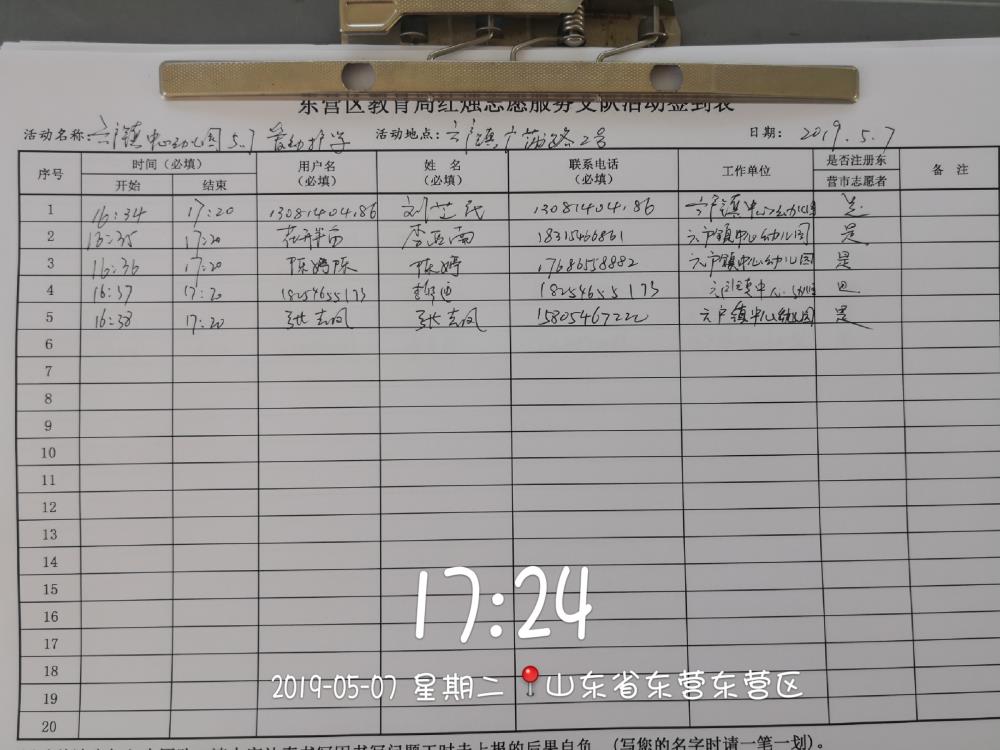 东营区教育局红烛志愿服务支队活动签到表
活动名称:六户镇中心幼儿园5.7 爱幼护学 活动地点:六户镇广蒲路2号 日期: 2019.5.7
序号 时间(必填) 用户名(必填) 姓 名(必填) 联系电话(必填) 工作单位 是否注册东营市志愿者 备 注
开始 结束
1 16:34 17:20 13081404186 刘 13081404186 六户镇中心幼儿园 是
2 16:35 17:20 花开半夏 李亚南 18315466861 六户镇中心幼儿园 是
3 16:36 17:20 陈婷陈 陈婷 17686558882 六户镇中心幼儿园 是
4 16:37 17:20 18254655173 18254655173 六户镇中心幼儿园 是
5 16:38 17:20 张志凤 张志凤 15805467222 六户镇中心幼儿园 是
6
7
8
9
10
11
12
13
14
15
16
17
18
19
20
17:24
2019-05-07 星期二 山东省东营东营区
后果自负。(写您的名字时请一笔一划)。